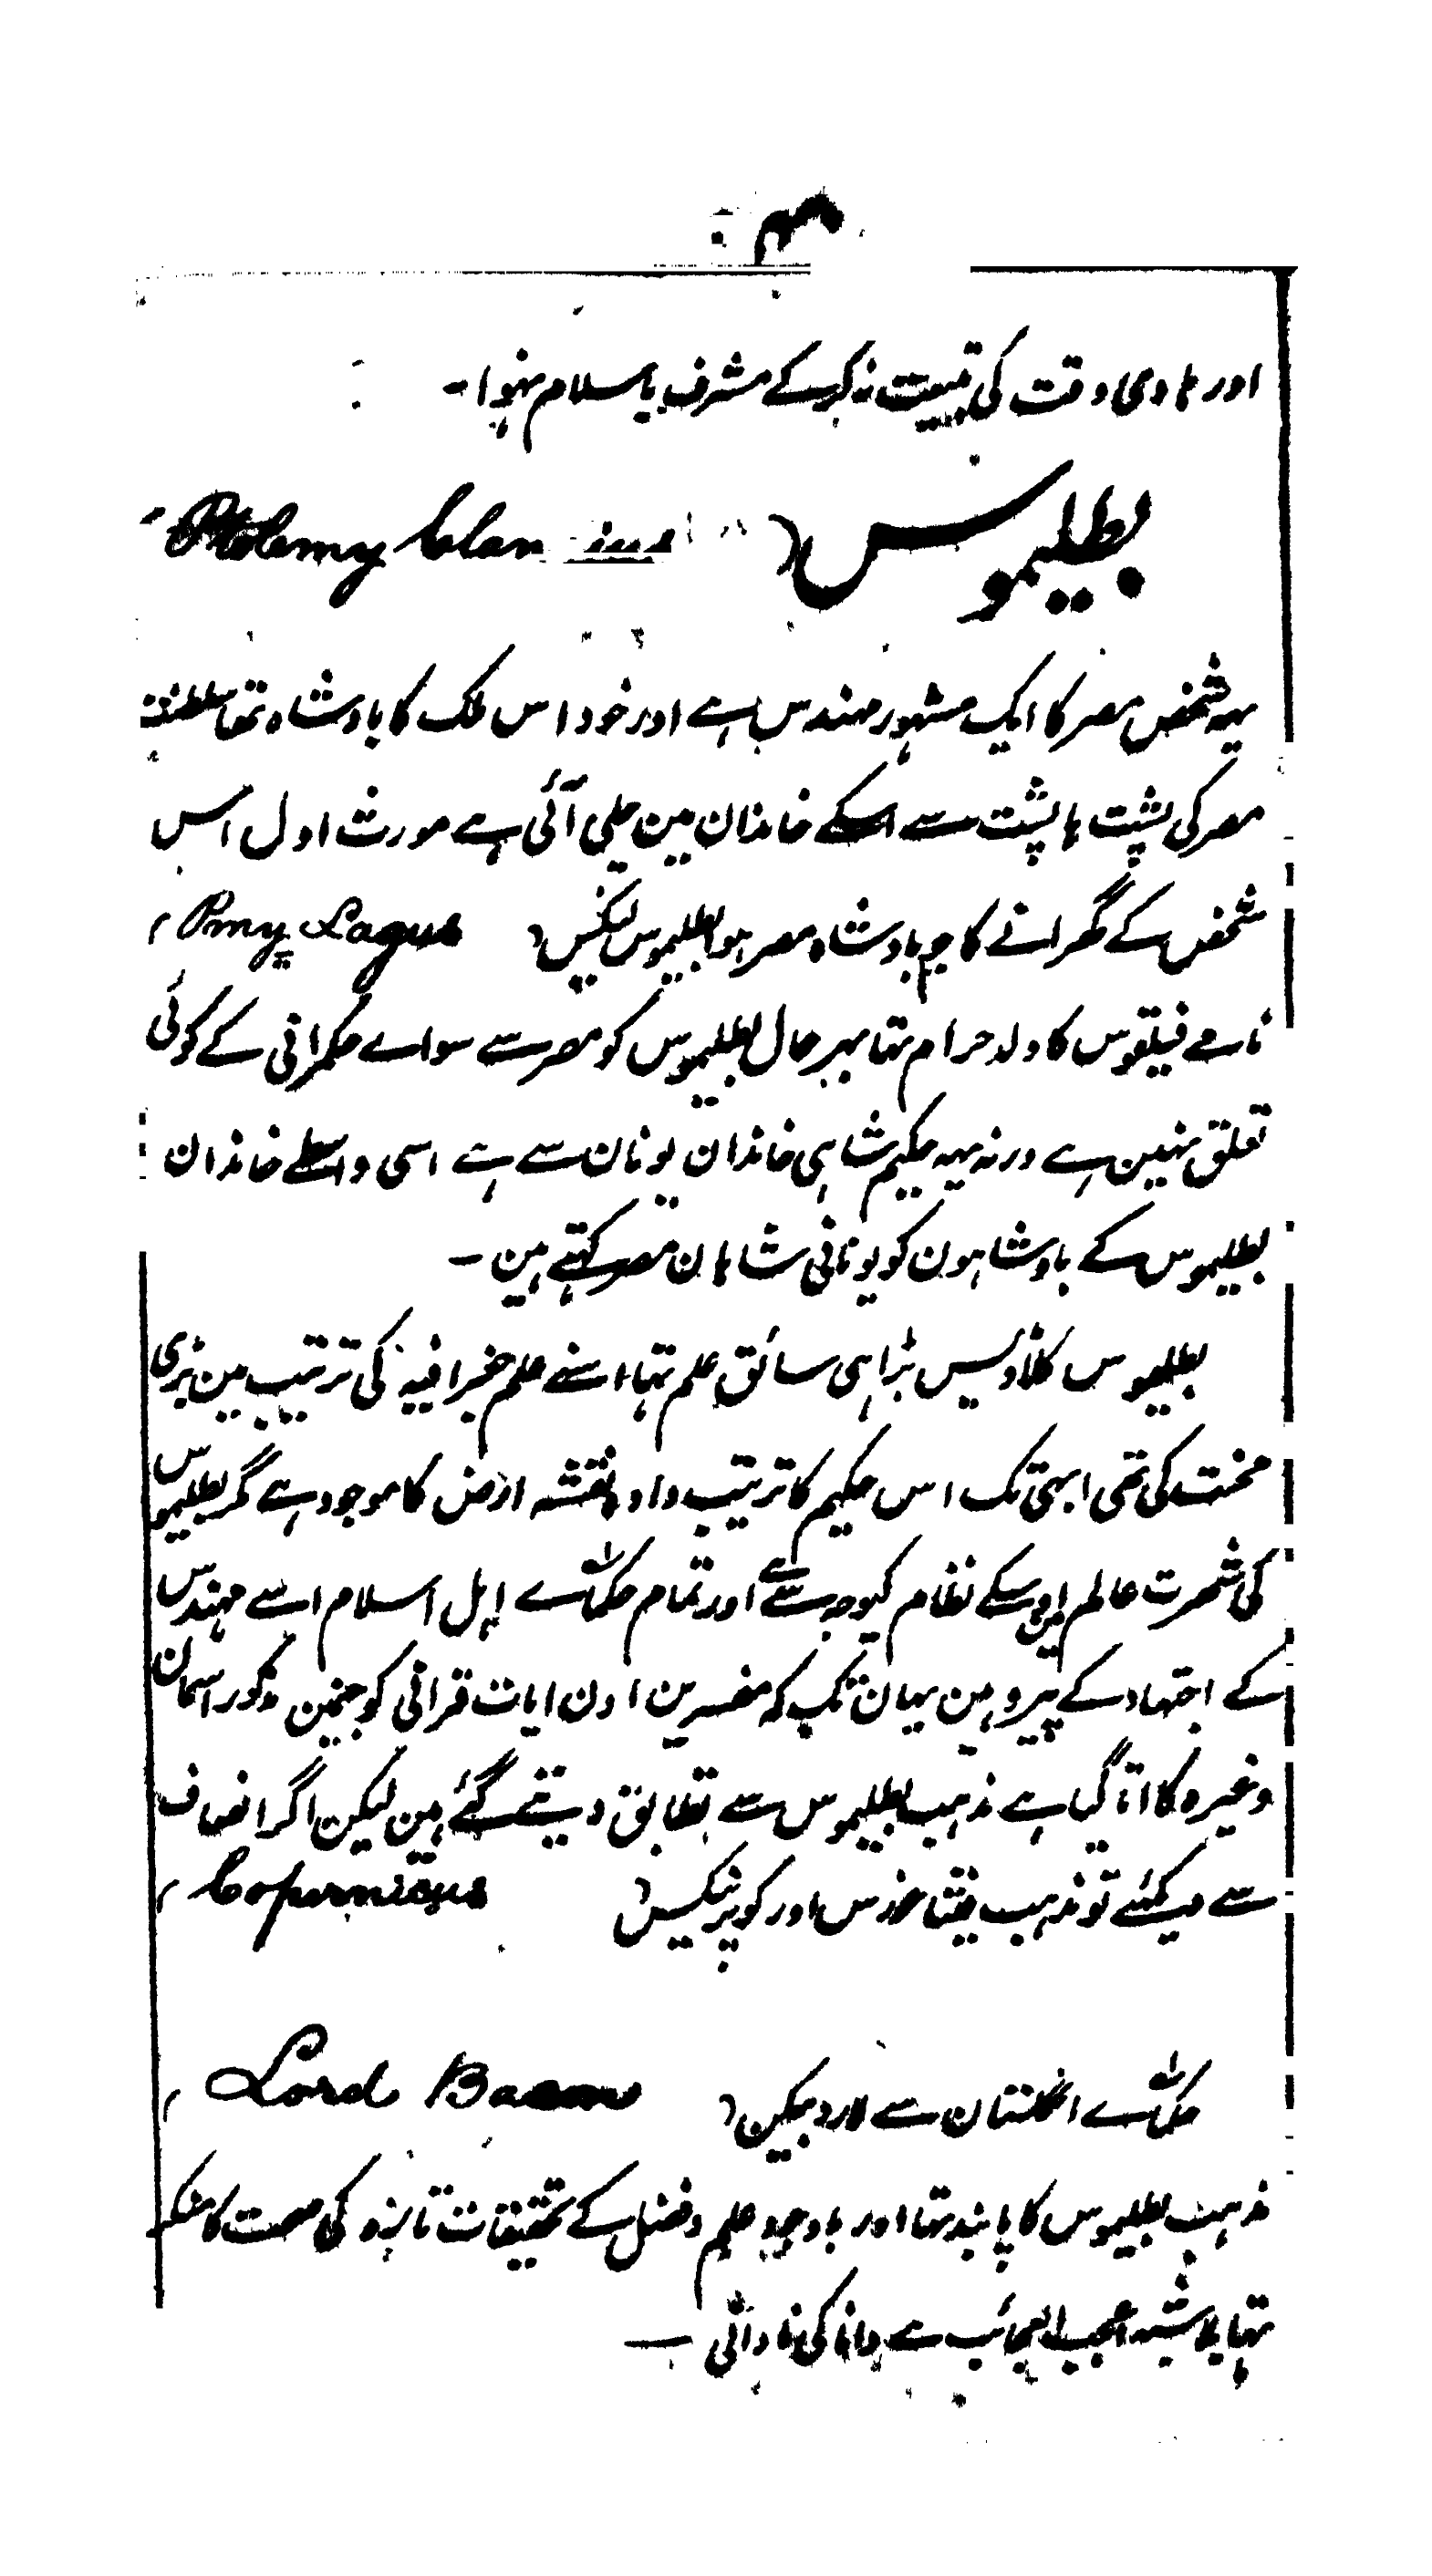 اور ہادی وقت کی تبعیت نہ کرکے مشرف باسلام نہوا۔
بطلیموس (Ptolemy Clau
یہہ شخص مصر کا ایک مشہور مہندس ہے اور خود اس ملک کا بادشاہ تھا سلطنت
مصر کی پشت ہا پشت سے اسکے خاندان مین چلی آئی ہے مورث اول اس
شخص کے گھرانے کا جو بادشاہ مصر ہوا بطلیموس لیگس (Pmy Lagus)
نامے فیلقوس کا ولد حرام تہا بہر حال بطلیموس کو مصر سے سواے حکمرانی کے کوئی
تعلق نہین ہے ورنہ یہہ حکیم شاہی خاندان یونان سے ہے اسی واسطے خاندان
بطلیموس کے بادشاہون کو یونانی شاہان مصر کہتے ہین ۔
بطلیموس کلاڈیس بڑا ہی سائق علم تہا اسنے علم جغرافیہ کی ترتیب مین بڑی
محنت کی تھی ابہی تک اس حکیم کا ترتیب دادہ نقشہ ارض کا موجود ہے مگر بطلیموس
کی شہرت عالم مین اوسکے نظام کیوجہ سے ہے اور تمام حکماے اہل اسلام اسے مہندس
کے اجتہاد کے پیرو ہین یہان تک کہ مفسرین اون ایات قرانی کو جنمین مذکور اسمان
وغیرہ کا اتا گیا ہے مذہب بطلیموس سے تطابق دیتے گئے ہین لیکن اگر انصاف
سے دیکہئے تو مذہب فیثاغورس اور کوپرنیکس (Copernicus)
حکماے انگلستان سے لارڈ بیکن (Lord Bacon)
مذہب بطلیموس کا پابند تہا اور باوجود علم وفضل کے تحقیقات تازہ کی صحت کا منکر
تہا بلاشبہ اعجب العجائب سے دانا کی نادانی ۔